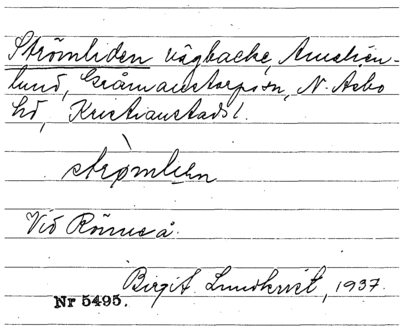 Strömliden vägbacke, Amalien-
lund, Gråmanstorps sn, N. Asbo
hd, Kristianstads l.
strømlien
Vid Rönneå.
Birgit Lundkvist, 1937.
Nr 5495.